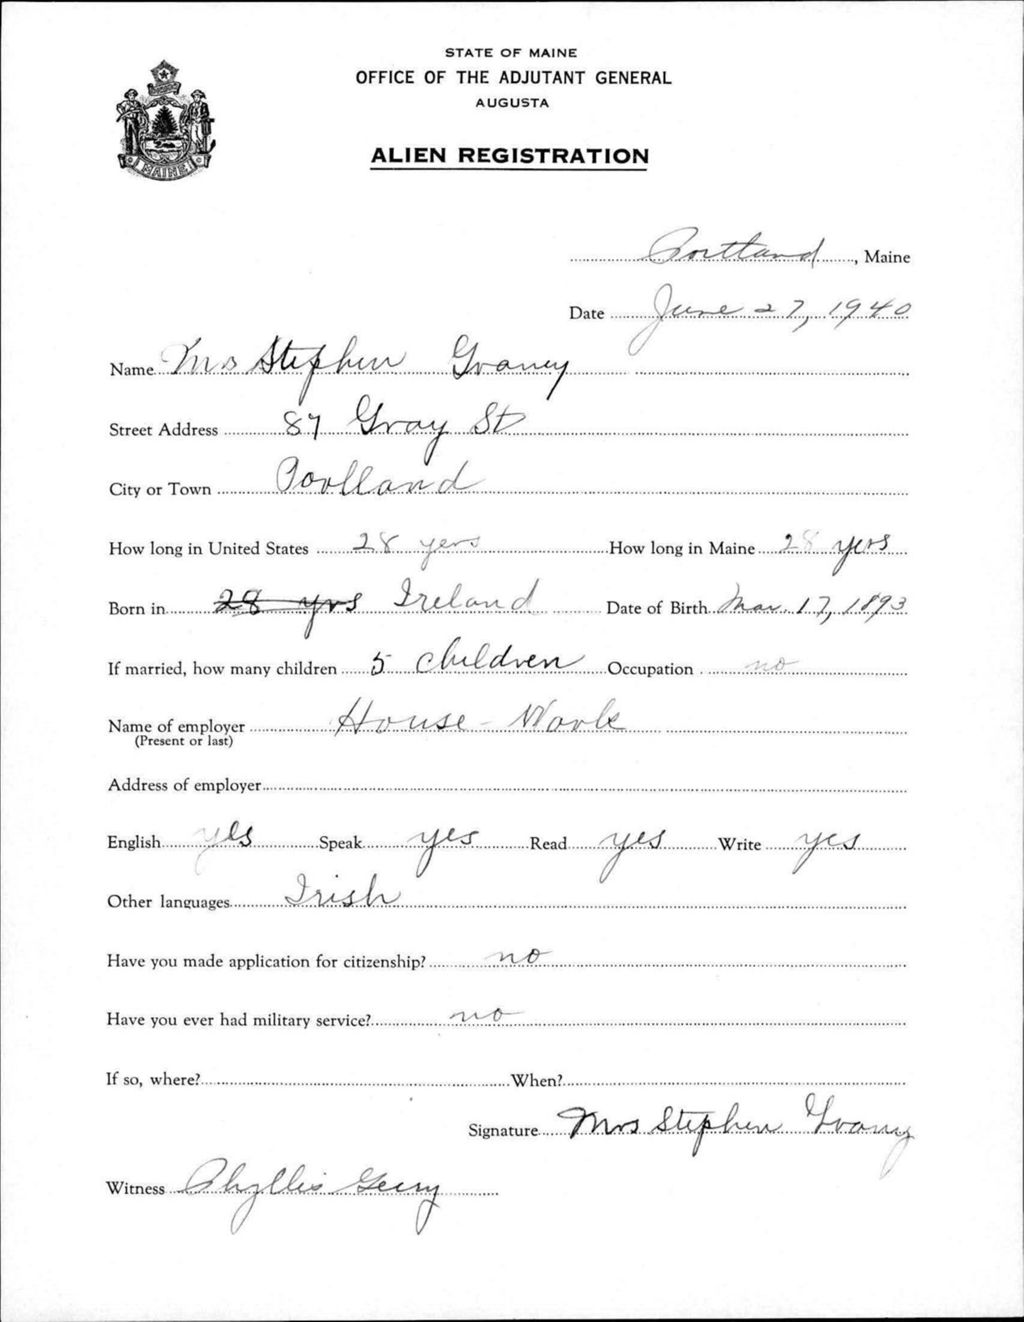 STATE OF MAINE
OFFICE OF THE ADJUTANT GENERAL
AUGUSTA
ALIEN REGISTRATION
MAINE
Portland, Maine
Date June 27, 1940
Name Mrs Stephen Graney
Street Address 87 Gray St
City or Town Portland
How long in United States 28 yers How long in Maine 28 yers
Born in 28 yrs Ireland Date of Birth Mar. 17, 1893
If married, how many children 5 children Occupation no
Name of employer House-Work
(Present or last)
Address of employer
English yes Speak yes Read yes Write yes
Other languages Irish
Have you made application for citizenship? no
Have you ever had military service? no
If so, where? When?
Signature Mrs Stephen Graney
Witness Phyllis Geery